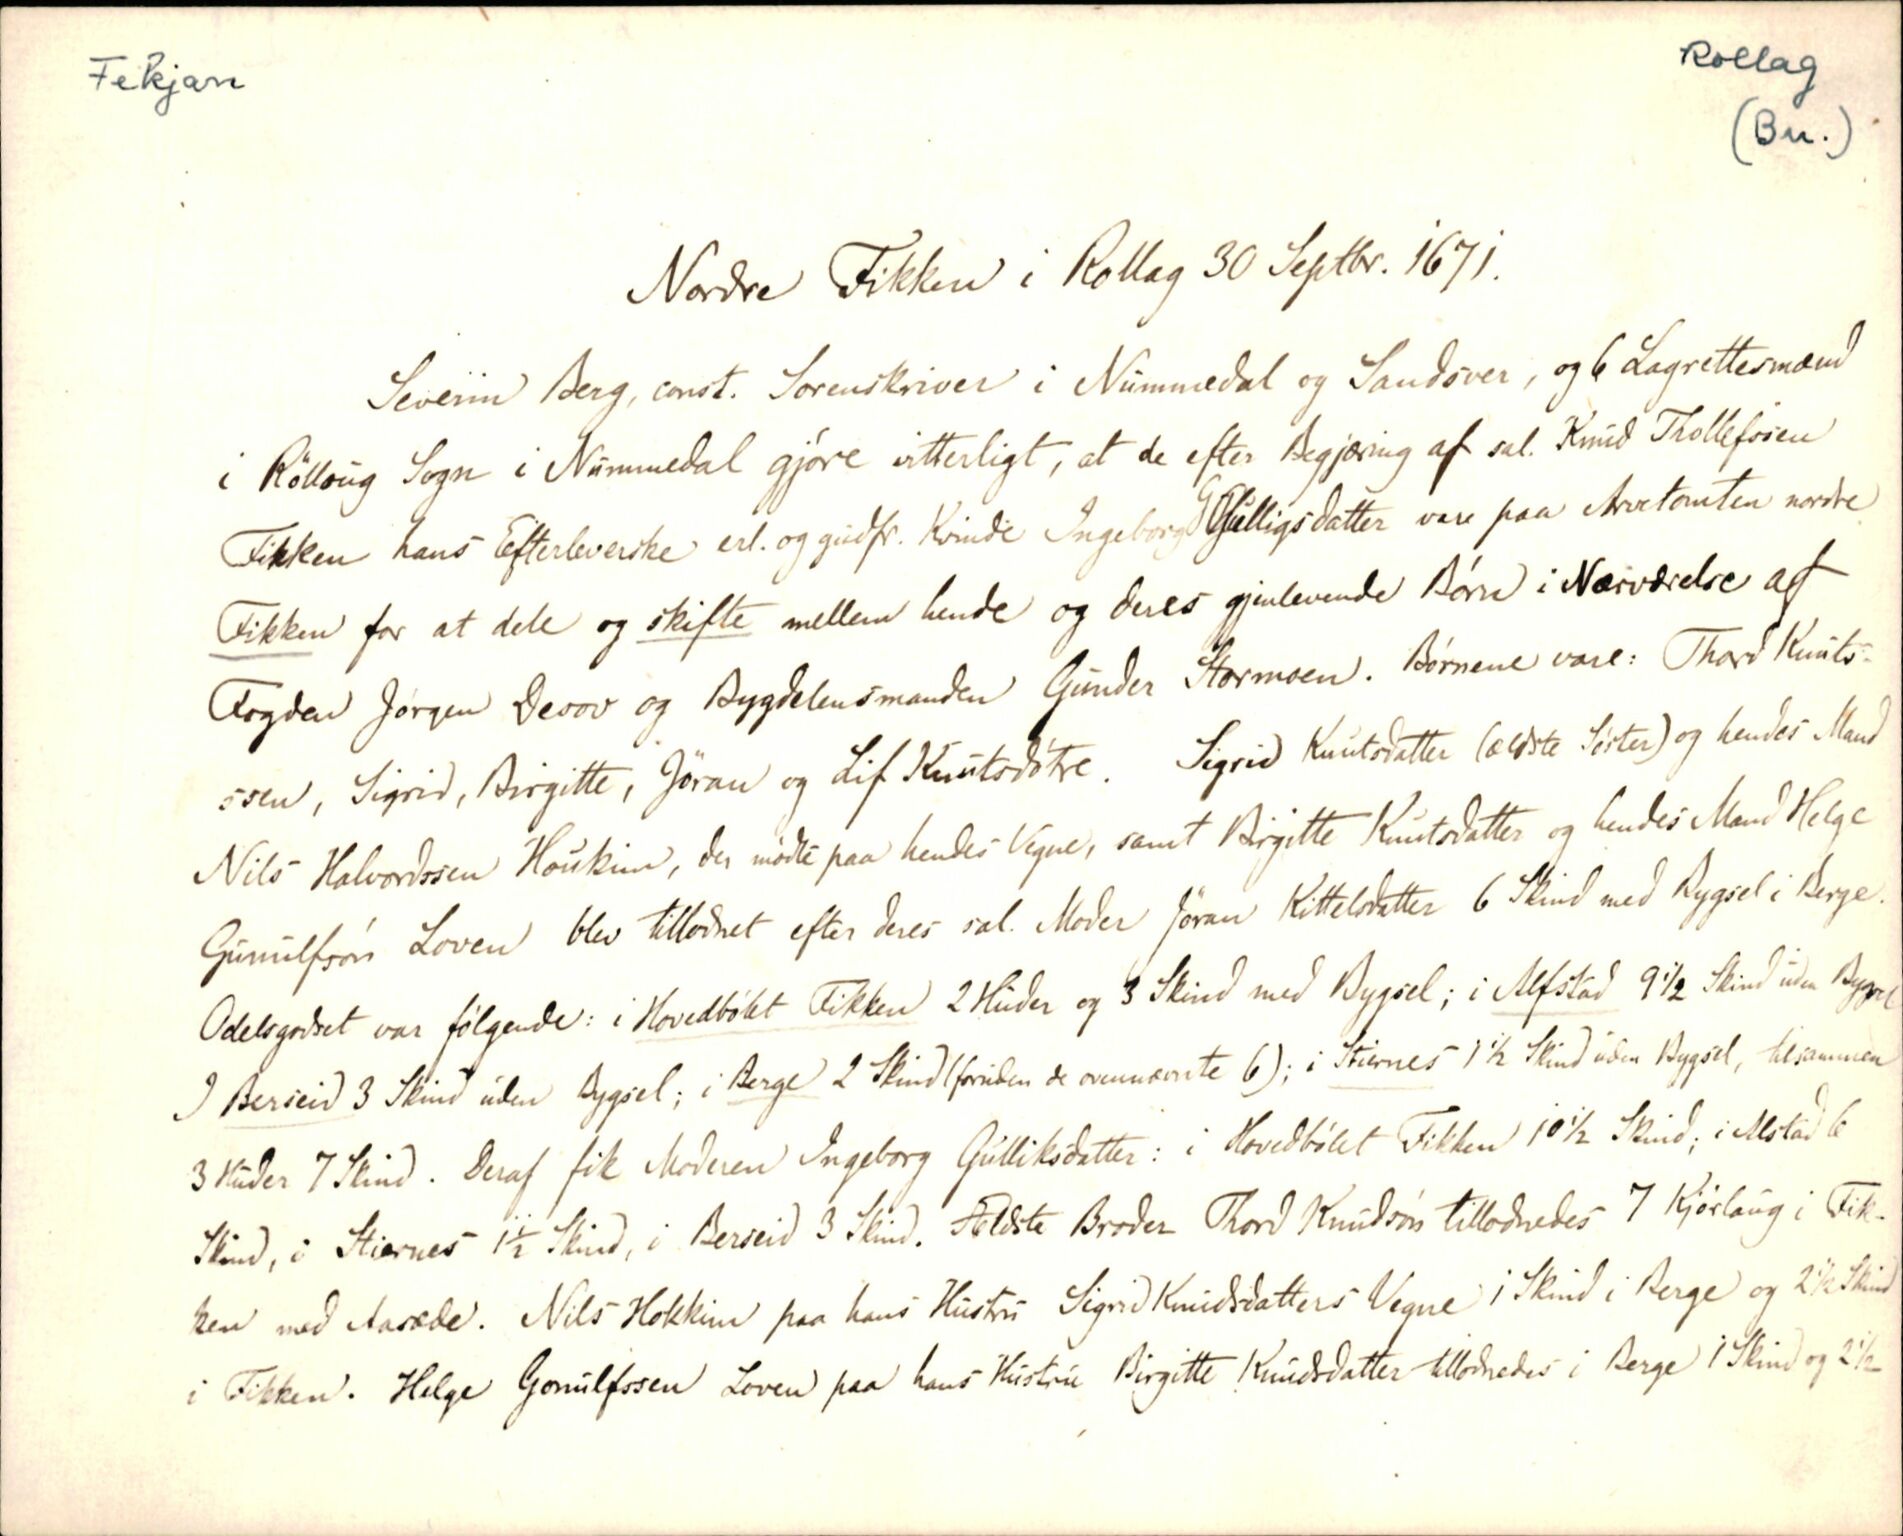 Fekjan
Rollag
(Bu.)
Nordre Fikken i Rollag 30 Septbr. 1671.
Severin Berg, const. Sorenskriver i Nummedal og Sandsver, og 6 Lagrettesmænd
i Rölloug Sogn i Nummedal gjöre vitterligt, at de efter Begjæring af sal. Knud Thollefssen
Fikken hans Efterleverske erl. og gudfr. Kvinde Ingeborg Gulligsdatter vare paa Arvetomten nordre
Fikken for at dele og skifte mellem hende og deres gjenlevende Börn i Nærværelse af
Fogden Jörgen Desov og Bygdelensmanden Gunder Stormoen. Börnene vare: Thord Knuts-
ssen, Sigrid, Birgitte, Jöran og Lif Knutsdötre. Sigrid Knutsdatter (ældste Söster) og hendes Mand
Nils Halvordssen Houkim, der mödte paa hendes Vegne, samt Birgitte Knutsdatter og hendes Mand Helge
Gunulfsön Loven blev tillodnet efter deres sal. Moder Jöran Kittelsdatter 6 Skind med Bygsel i Berge.
Odelsgodset var fölgende: i Hovedbölet Fikken 2 Huder og 3 Skind med Bygsel; i Alfstad 9 1/2 Skind uden Bygsel
I Berseid 3 Skind uden Bygsel; i Berge 2 Skind (foruden de ovennævnte 6); i Stiernes 1 1/2 Skind uden Bygsel, tilsammen
3 Huder 7 Skind. Deraf fik Moderen Ingeborg Gulliksdatter: i Hovedbölet Fikken 10 1/2 Skind; i Alstad 6
Skind, i Stiernes 1 1/2 Skind, i Berseid 3 Skind. Ældste Broder Thord Knudsön tillodnedes 7 Kjörlaug i Fik-
ken med Aasæde. Nils Hokkim paa hans Hustru Sigrid Knudsdatters Vegne 1 Skind i Berge og 2 1/2 Skind
i Fikken. Helge Gonulfssen Loven paa hans Hustrue Birgitte Knudsdatter tillodnedes i Berge 1 Skind og 2 1/2